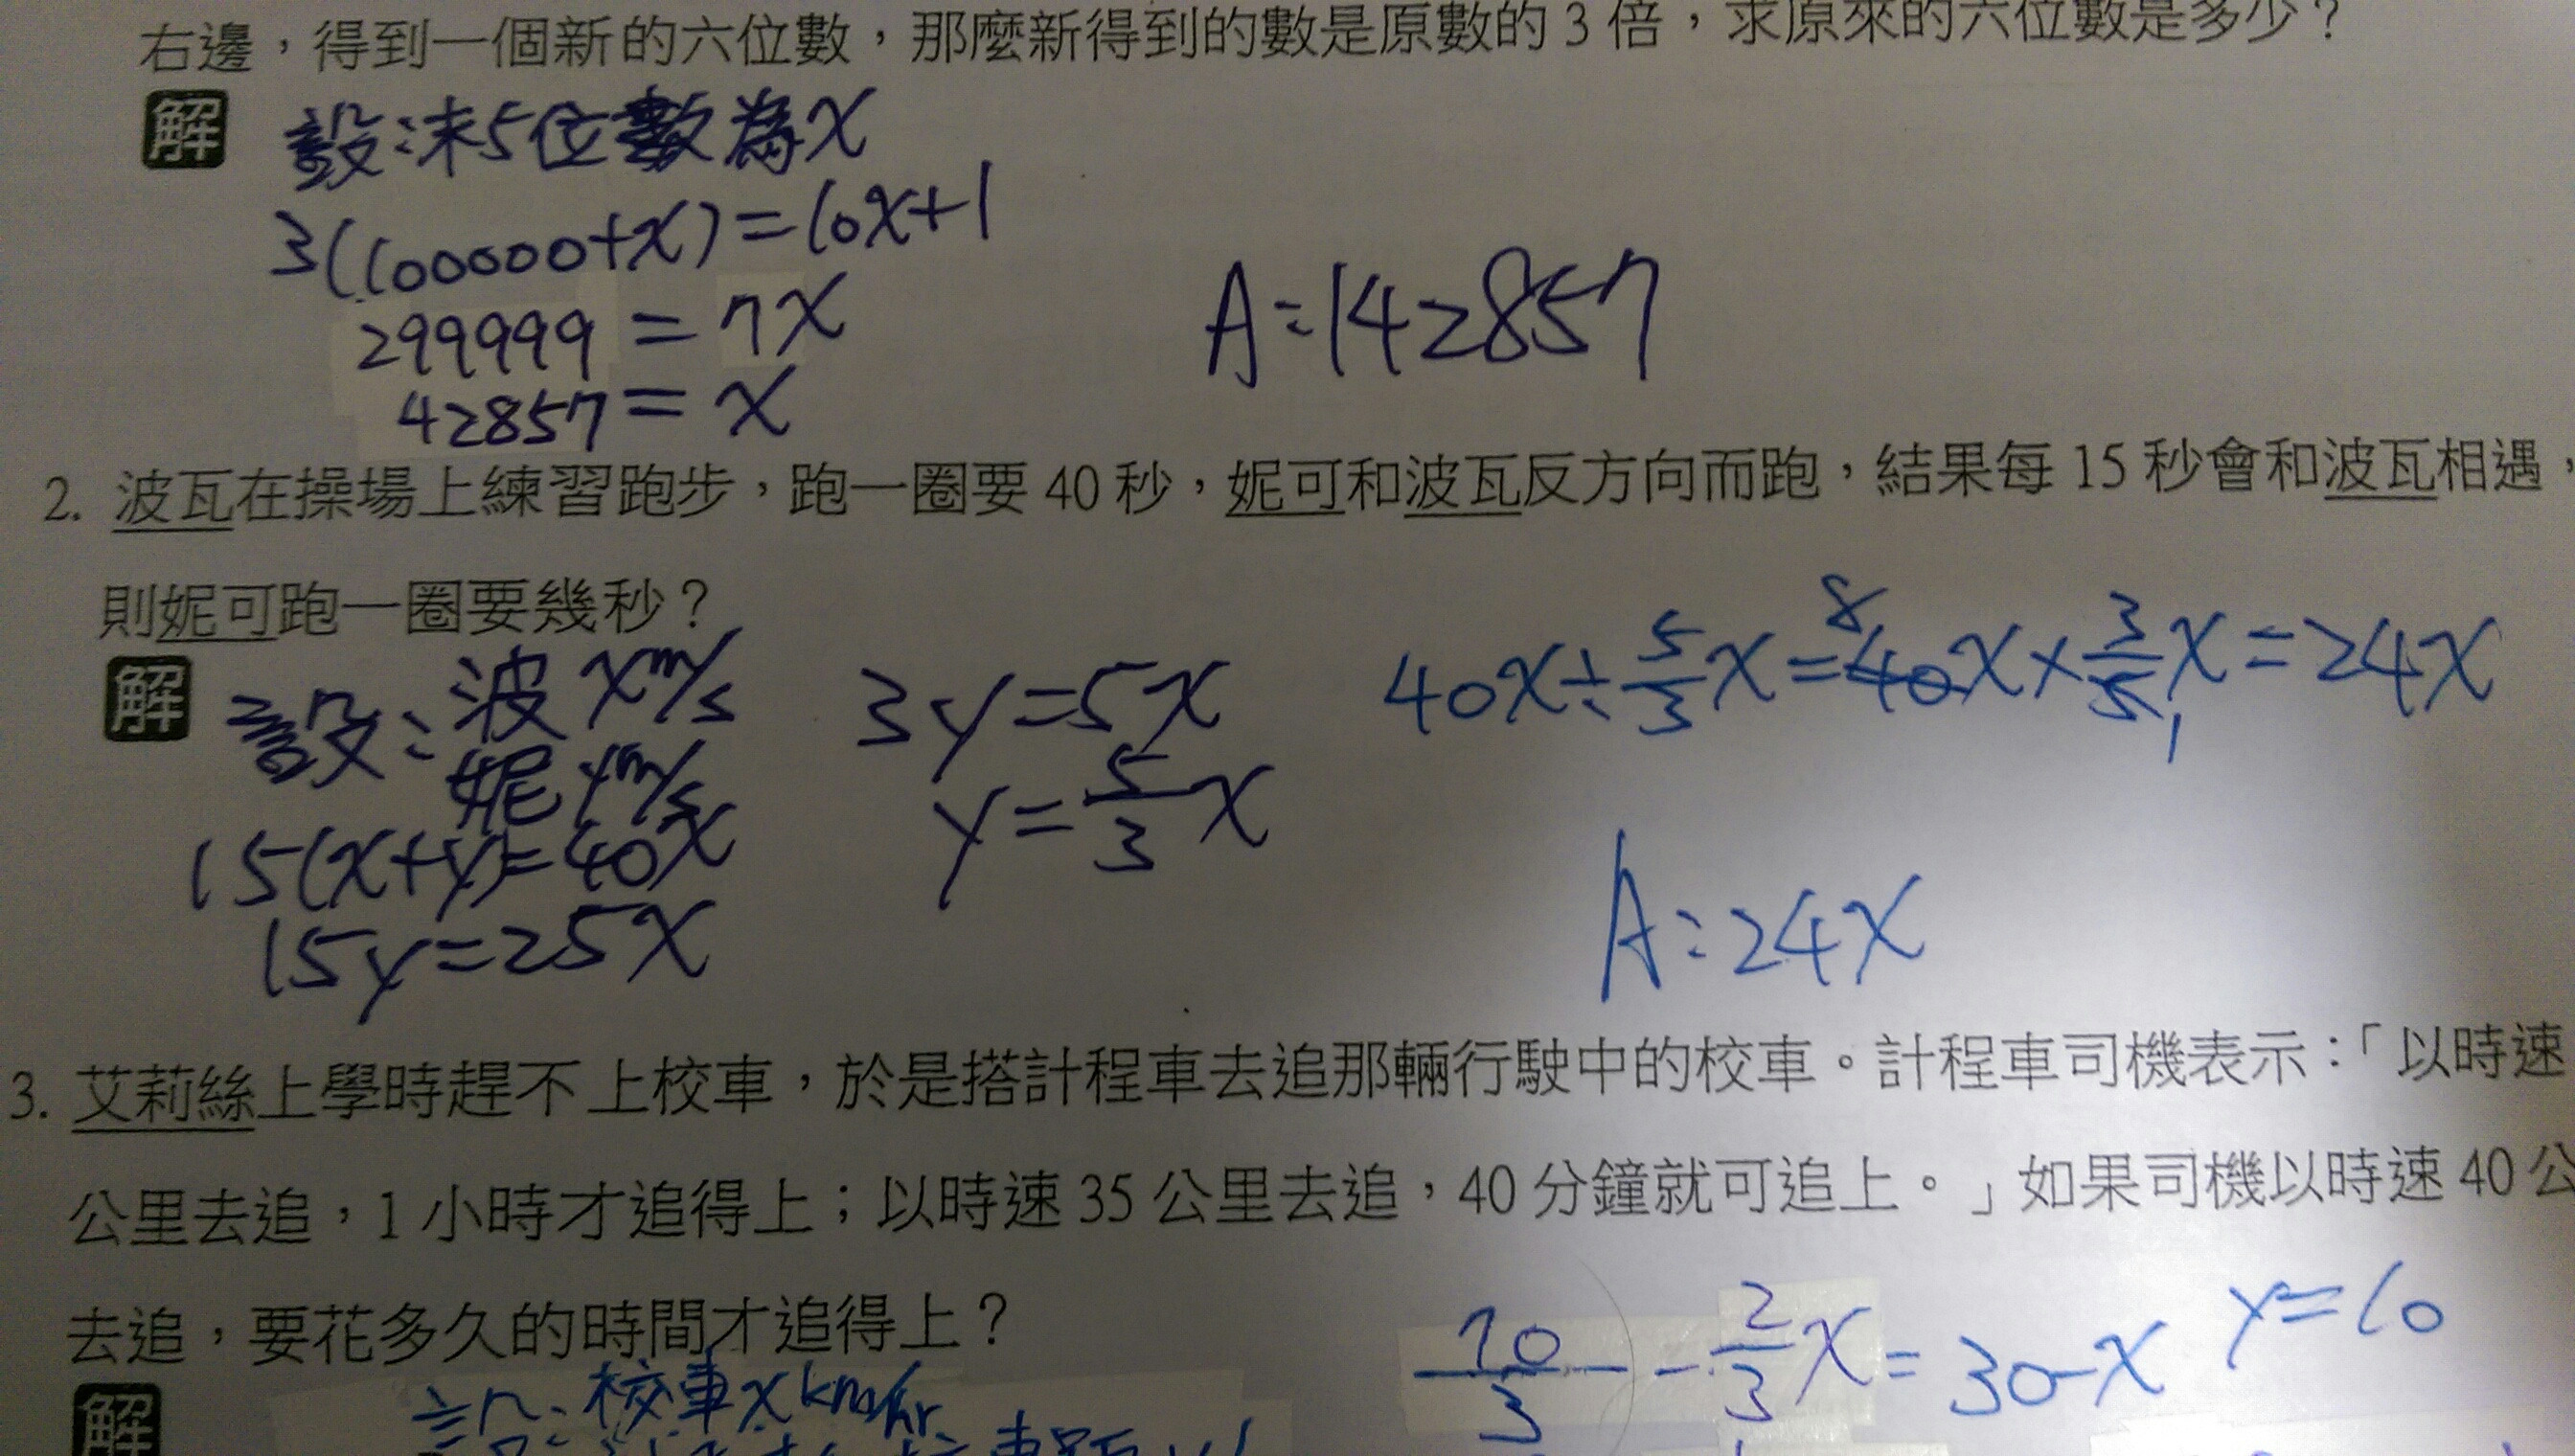 右邊，得到一個新的六位數，那麼新得到的數是原數的 3 倍，求原來的六位數是多少？
解 設:末5位數為x
3(100000+x)=10x+1
299999=7x
42857=x
A:142857
2. 波瓦在操場上練習跑步，跑一圈要 40 秒，妮可和波瓦反方向而跑，結果每 15 秒會和波瓦相遇，
則妮可跑一圈要幾秒？
解 設:波 x m/s
妮 y m/s
15(x+y)=40x
15y=25x
3y=5x
y=5/3x
40x÷5/3x=40x×3/5x=24x
8
1
A:24x
3. 艾莉絲上學時趕不上校車，於是搭計程車去追那輛行駛中的校車。計程車司機表示：「以時速
公里去追，1 小時才追得上；以時速 35 公里去追，40 分鐘就可追上。」如果司機以時速 40 公
去追，要花多久的時間才追得上？
解 設:校車x km/hr
70/3-2/3x=30-x
y=10